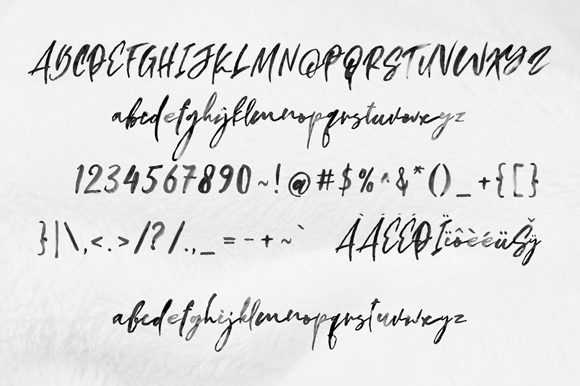 ABCDEFGHIJKLMNOPQRSTUVWXYZ
abcdefghijklmnopqrstuvwxyz
1234567890~!@#$%^&*()_+{[]}
}|\,<.>/?/.,_=-+~` ÀÁÉÈÐÏïôèéüÿŠỳ
abcdefghijklmnopqrstuvwxyz